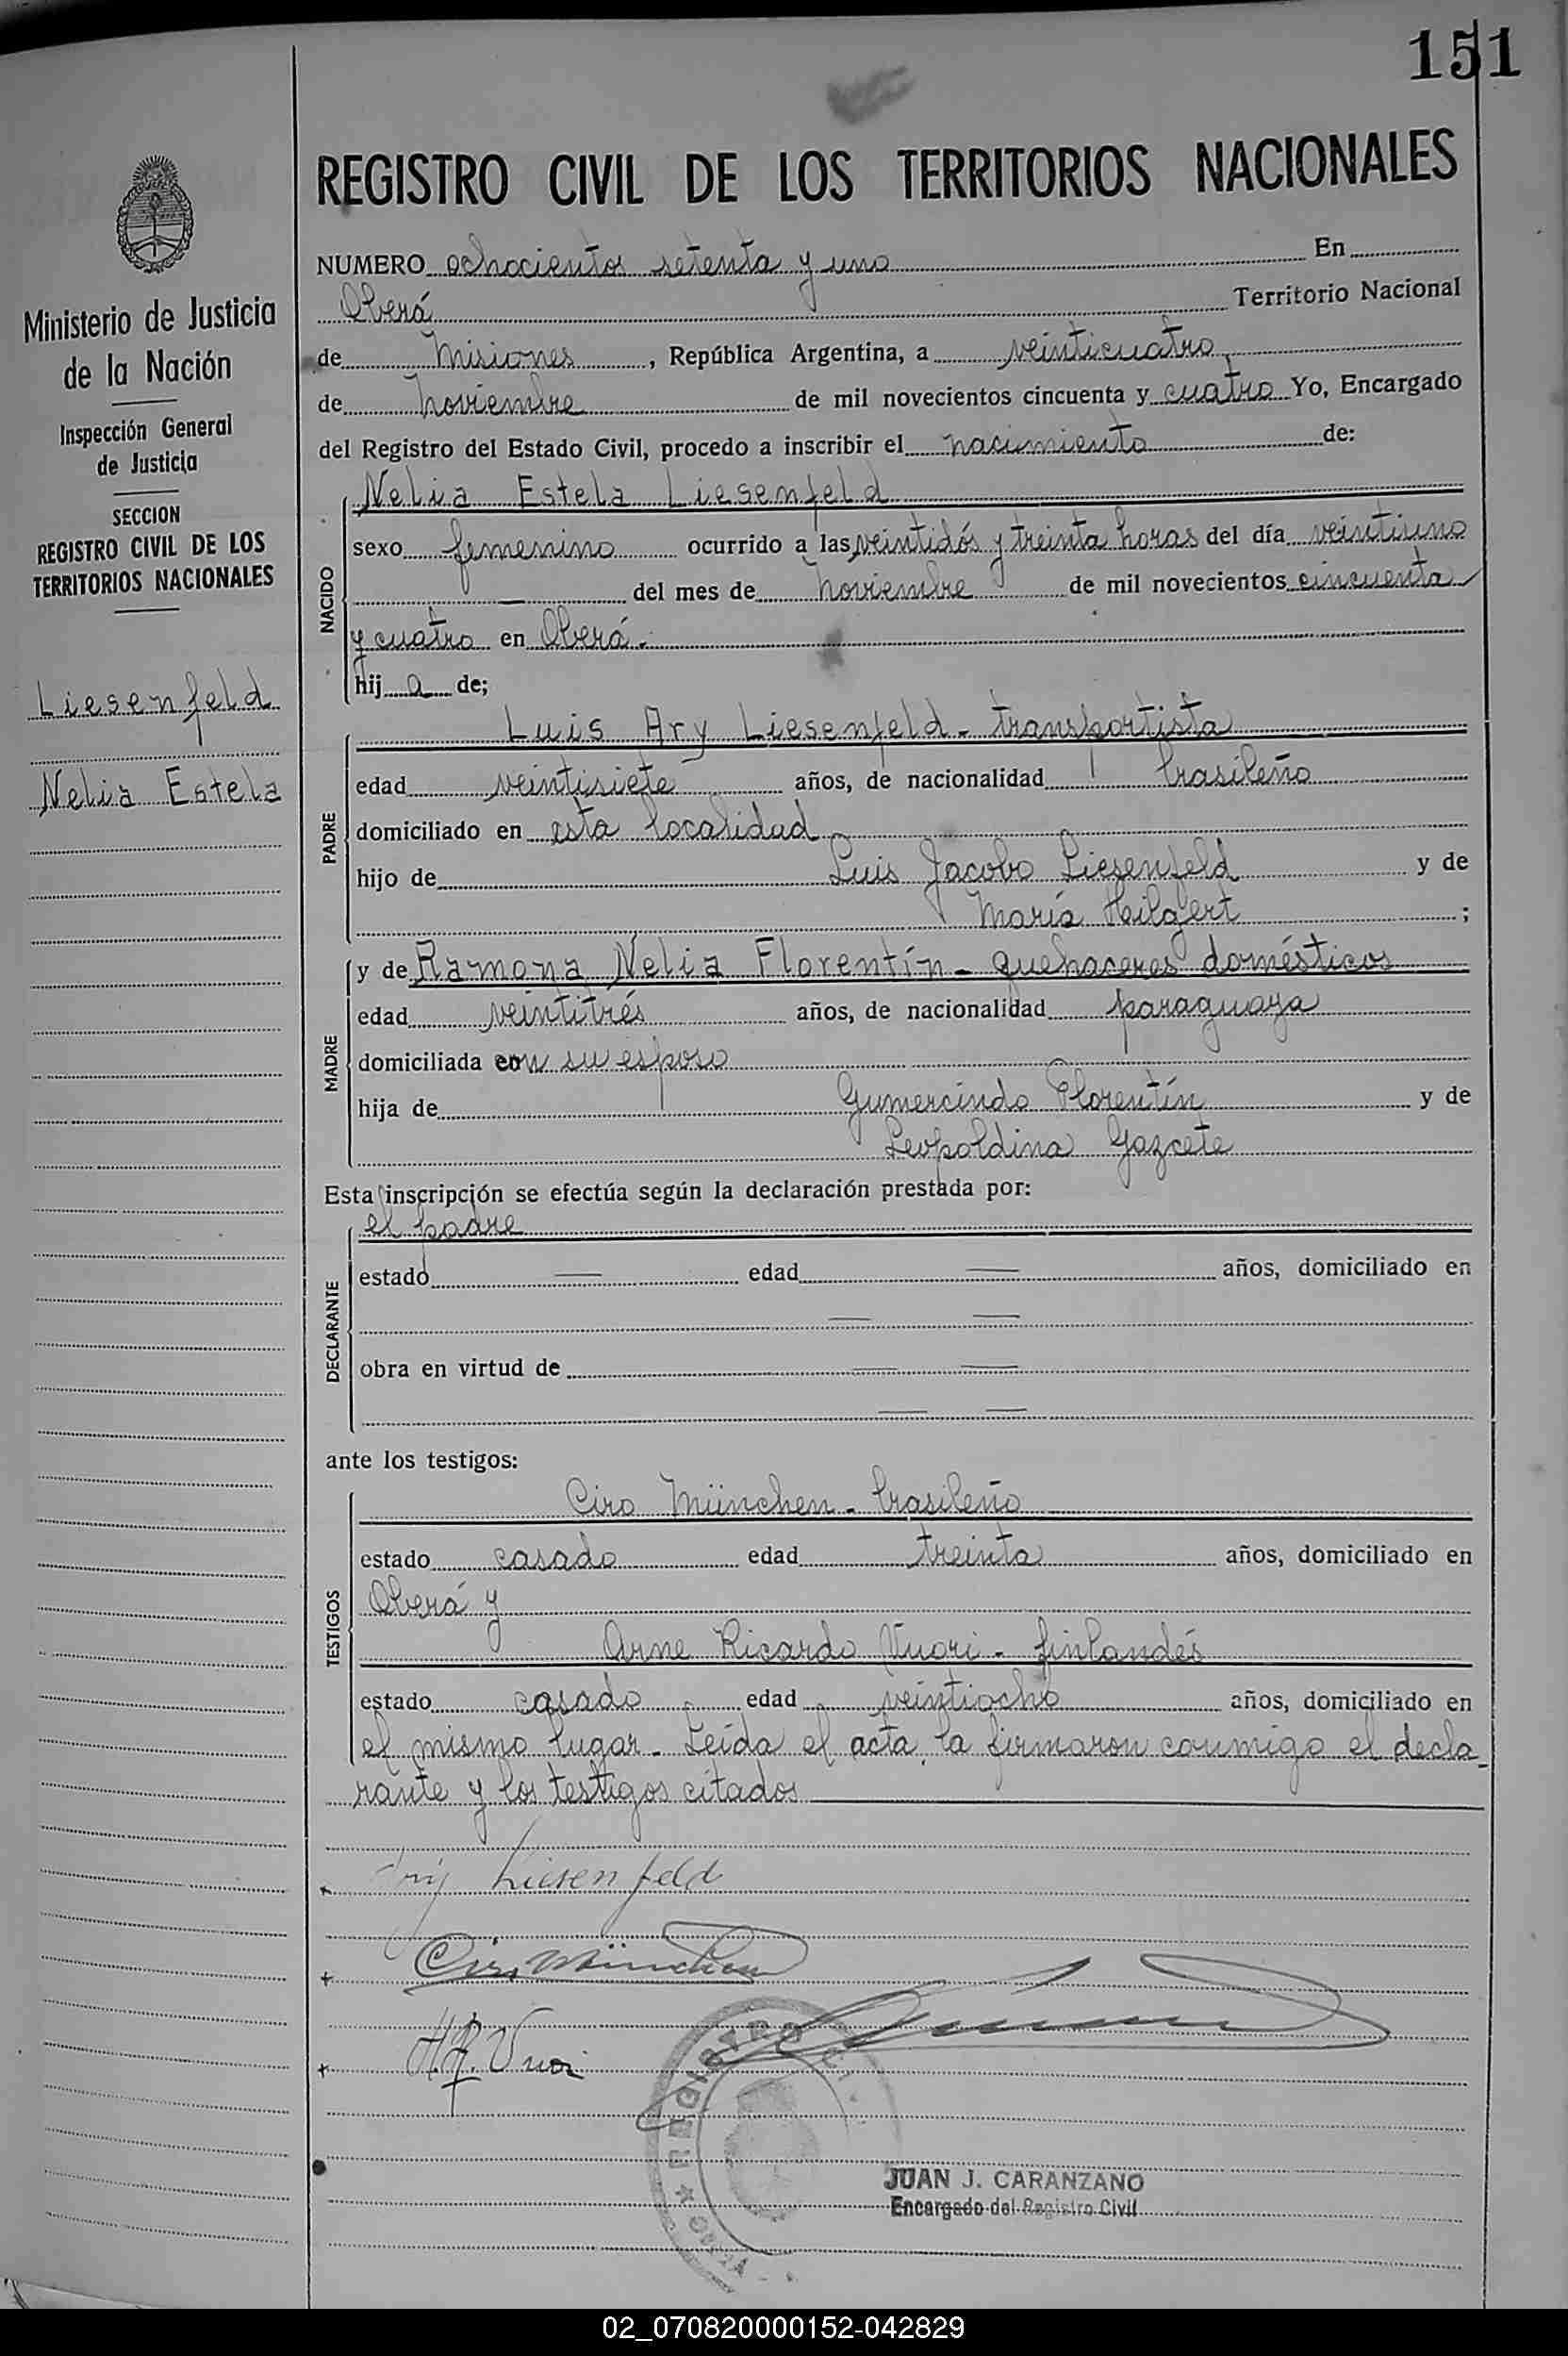 151
REGISTRO CIVIL DE LOS TERRITORIOS NACIONALES
Ministerio de Justicia
de la Nación
Inspección General
de Justicia
SECCION
REGISTRO CIVIL DE LOS
TERRITORIOS NACIONALES
Liesenfeld
Nelia Estela
NUMERO ochocientos setenta y uno En
Oberá Territorio Nacional
de Misiones, República Argentina, a veinticuatro
de noviembre de mil novecientos cincuenta y cuatro Yo, Encargado
del Registro del Estado Civil, procedo a inscribir el nacimiento de:
NACIDO
Nelia Estela Liesenfeld
sexo femenino ocurrido a las veintidós y treinta horas del día veintiuno
— del mes de noviembre de mil novecientos cincuenta
y cuatro en Oberá.
hij a de;
PADRE
Luis Ary Liesenfeld - transportista
edad veintisiete años, de nacionalidad brasileño
domiciliado en esta localidad
hijo de Luis Jacobo Liesenfeld y de
María Heilgert ;
MADRE
y de Ramona Nelia Florentín - quehaceres domésticos
edad veintitrés años, de nacionalidad paraguaya
domiciliada con su esposo
hija de Gumercindo Florentín y de
Leopoldina Gazcete
Esta inscripción se efectúa según la declaración prestada por:
DECLARANTE
el padre
estado — edad — años, domiciliado en
— —
obra en virtud de — —
— —
ante los testigos:
TESTIGOS
Ciro München - brasileño
estado casado edad treinta años, domiciliado en
Oberá y
Arne Ricardo Vuori - finlandés
estado casado edad veintiocho años, domiciliado en
el mismo lugar. Leída el acta, la firmaron conmigo el decla-
rante y los testigos citados
Ary Liesenfeld
Ciro München
Vuori
REGISTRO CIVIL
OBERA
JUAN J. CARANZANO
Encargado del Registro Civil
02_070820000152-042829